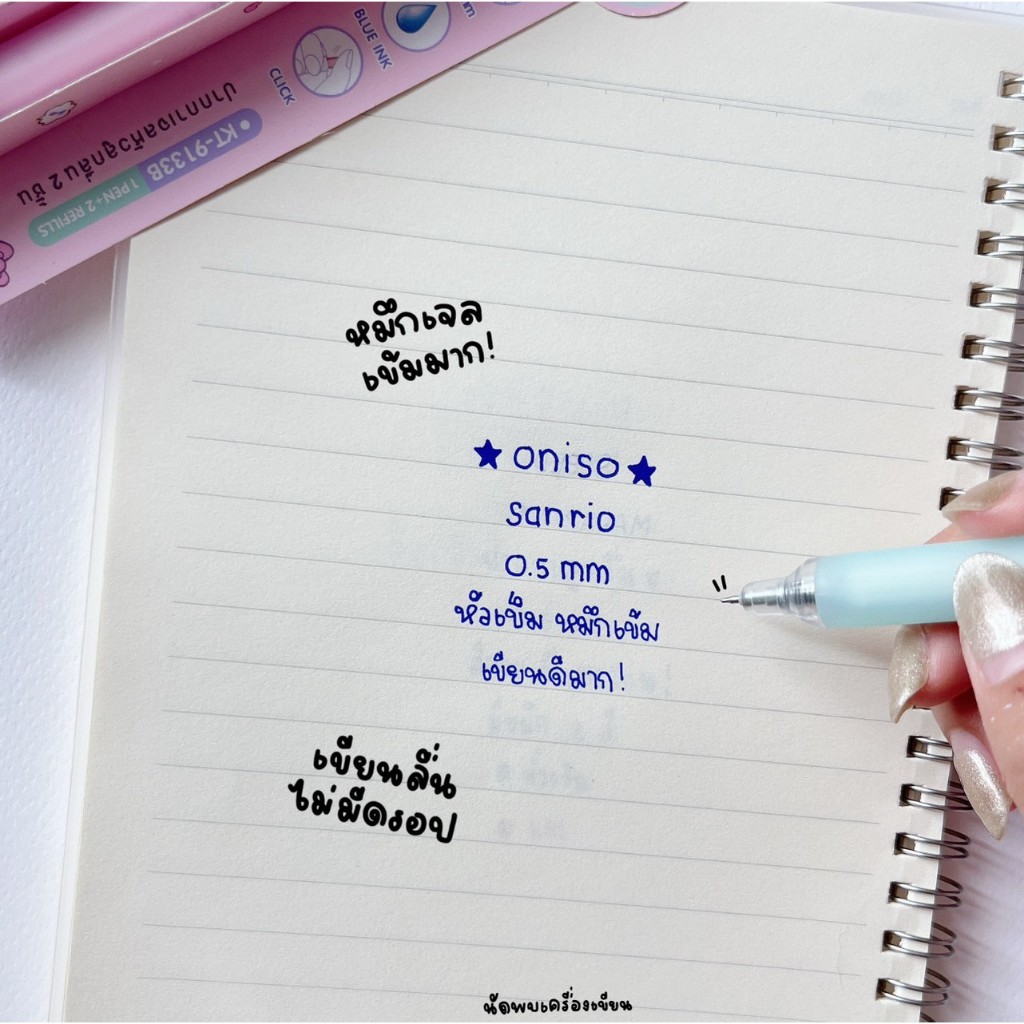 BLUE INK
CLICK
ปากกาเจลหัวลูกลื่น 2 ชิ้น
• KT-9133B
1 PEN+2 REFILLS
หมึกเจล
เข้มมาก!
★ oniso ★
sanrio
0.5 mm
หัวเข็ม หมึกเข้ม
เขียนดีมาก!
เขียนลื่น
ไม่มีดรอป
นัดพบเครื่องเขียน